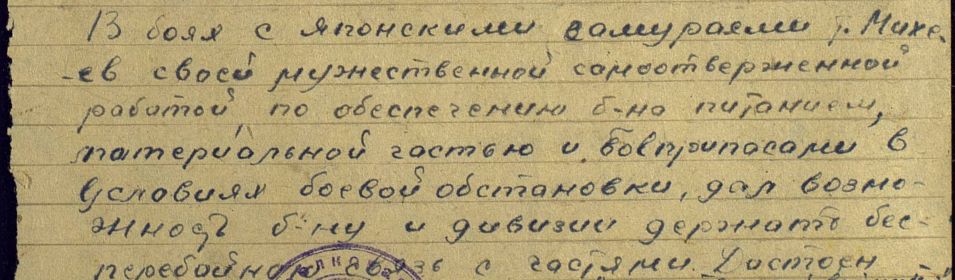 В боях с японскими самураями т. Михе-
-ев своей мужественной самоотверженной
работой, по обеспечению б-на питанием,
материальной частью и боеприпасами в
условиях боевой обстановки, дал возмо-
жность б-ну и дивизии держать бес-
перебойную связь с частями. Достоен